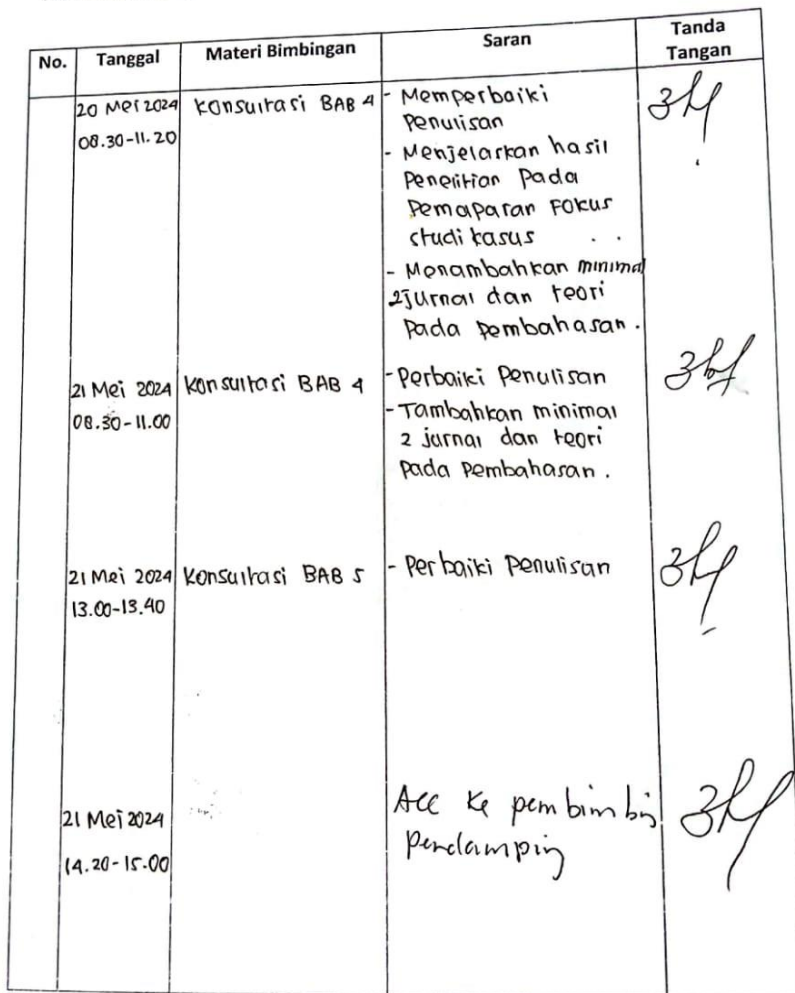 No. Tanggal Materi Bimbingan Saran Tanda Tangan
20 Mei 2024 Konsultasi BAB 4 - Memperbaiki
08.30-11.20 Penulisan
- Menjelaskan hasil
Penelitian Pada
Pemaparan Fokus
studi kasus
- Menambahkan minimal
2 jurnal dan teori
Pada Pembahasan.
21 Mei 2024 Konsultasi BAB 4 - Perbaiki Penulisan
08.30-11.00 - Tambahkan minimal
2 jurnal dan teori
Pada Pembahasan.
21 Mei 2024 Konsultasi BAB 5 - Perbaiki Penulisan
13.00-13.40
21 Mei 2024 Acc ke pembimbing
14.20-15.00 Pendamping